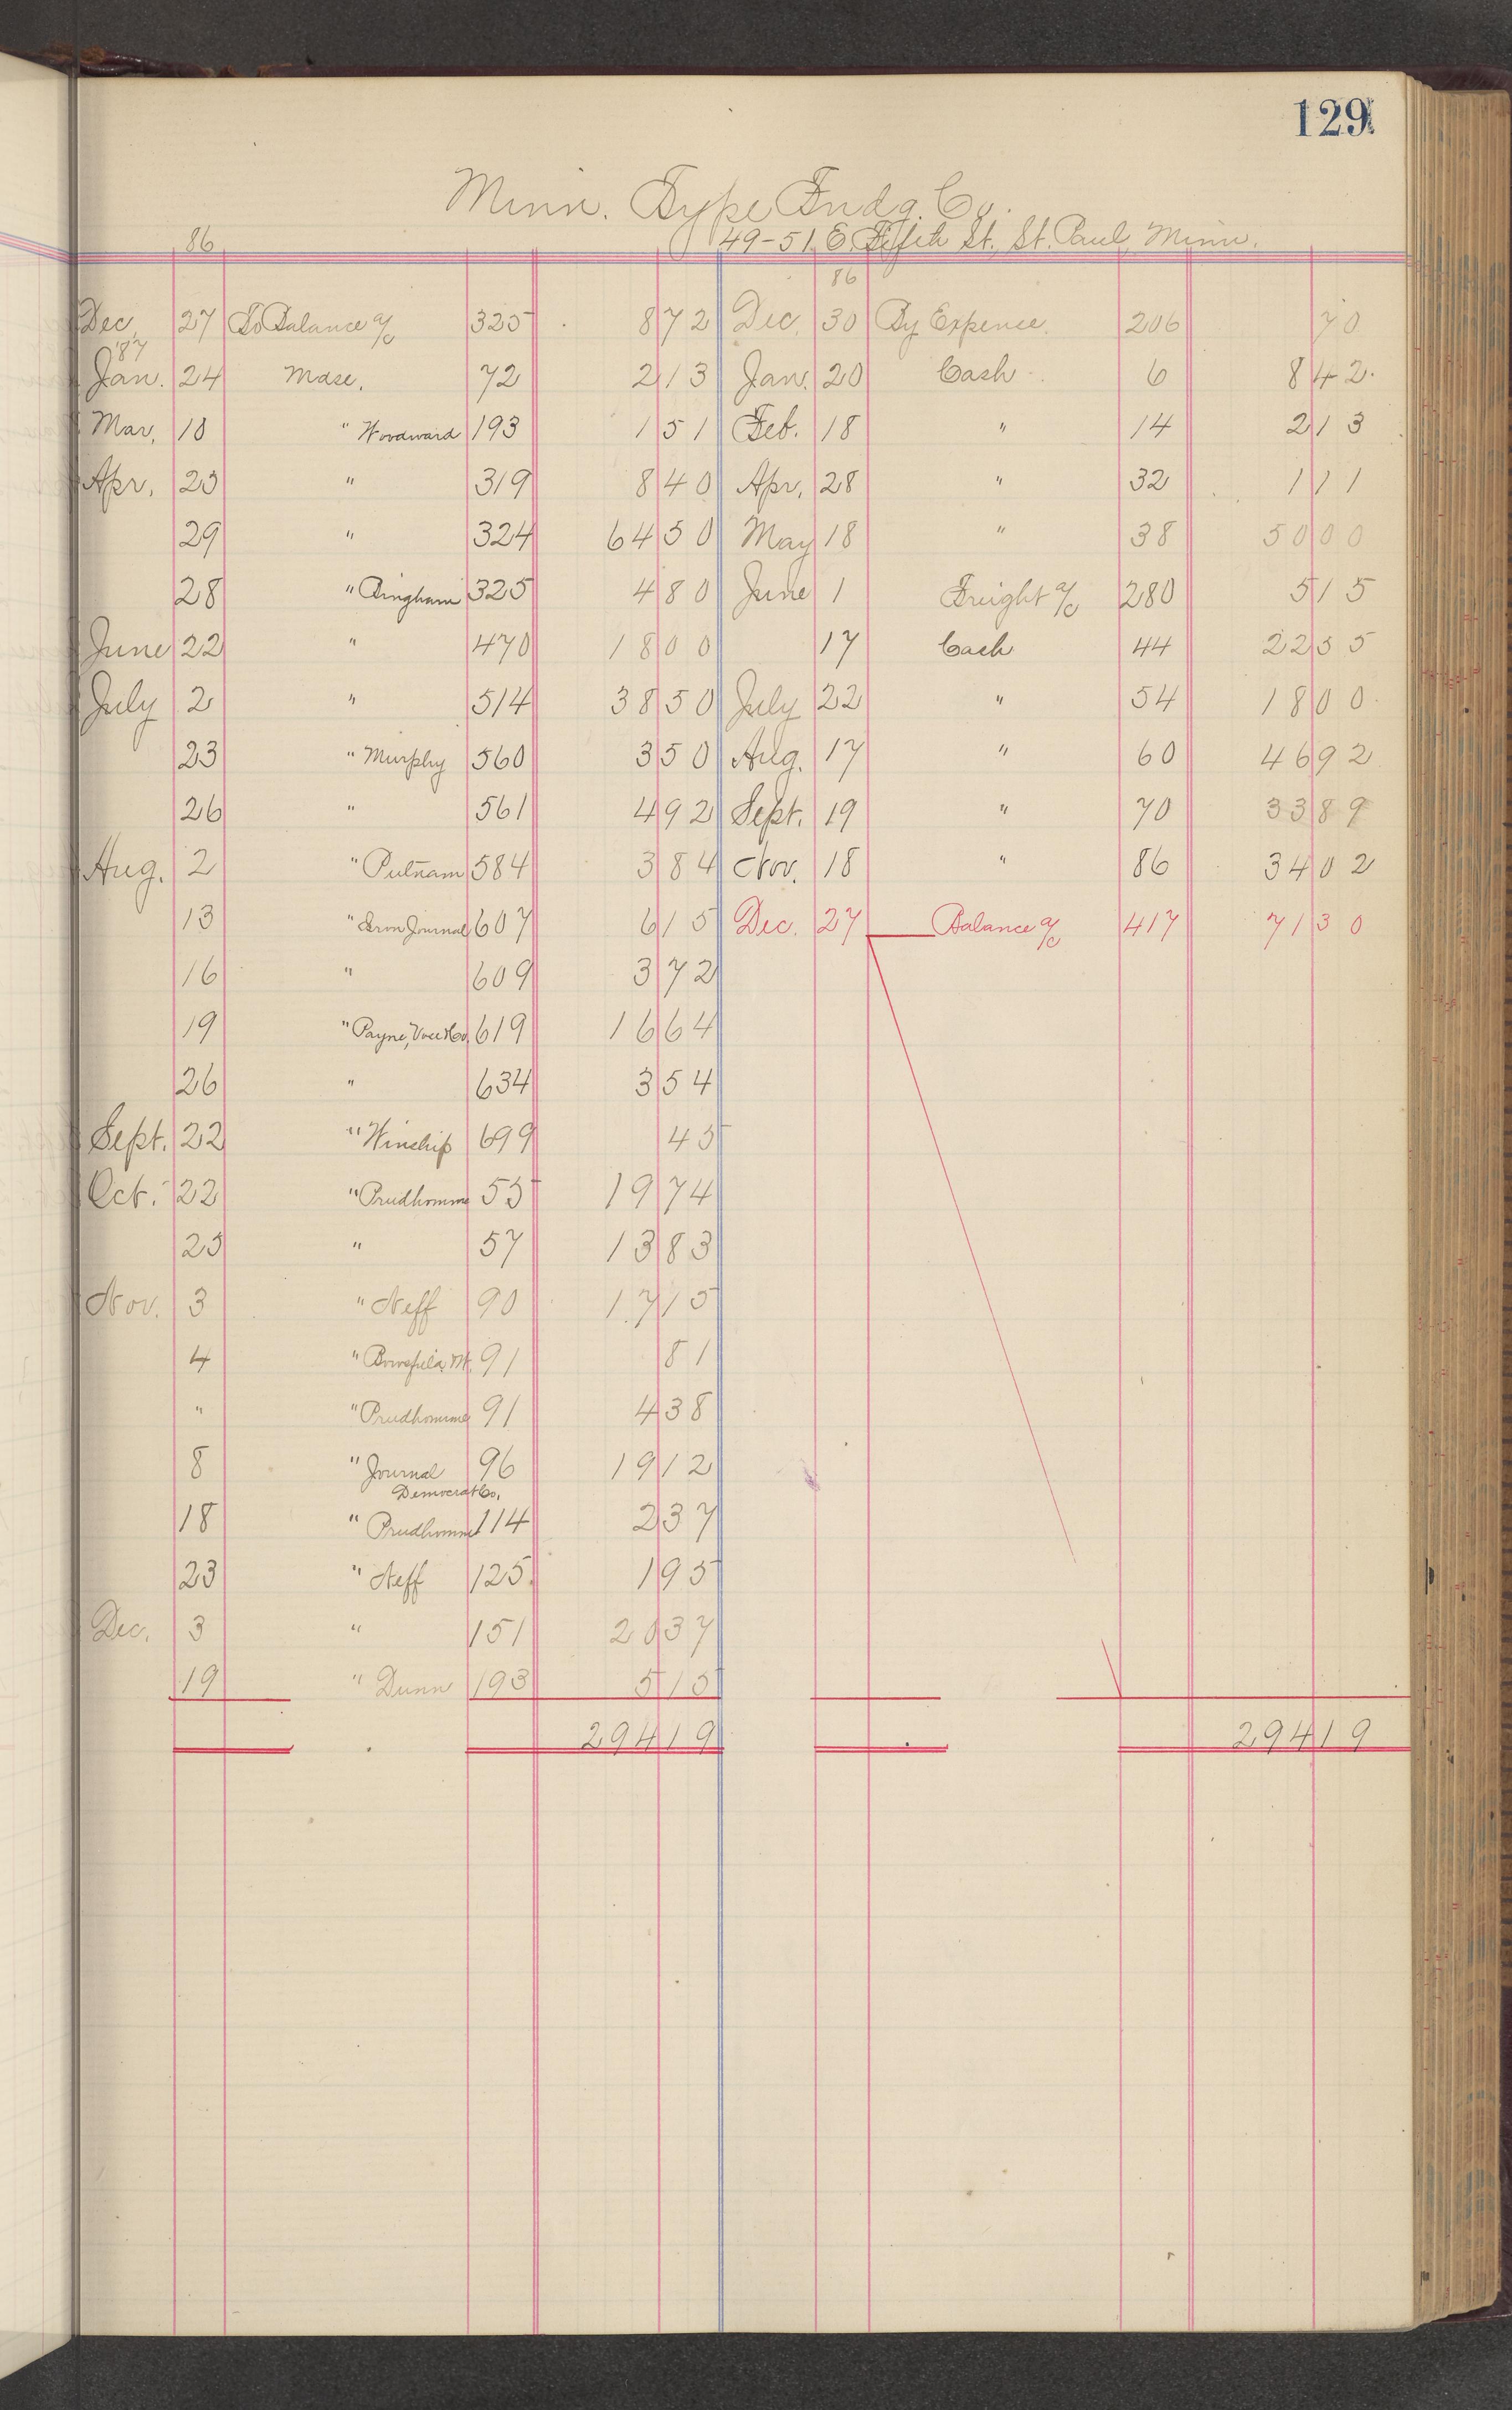 129
Minn. Type Fndg. Co.
49-51 E Fifth St., St. Paul, Minn.
86
86
Dec. 27 To Balance a/c 325 8 72 Dec. 30 By Expence. 206 70
'87
Jan. 24 Mdse. 72 2 13 Jan. 20 Cash 6 8 42
Mar. 18 " Woodward 193 1 51 Feb. 18 " 14 2 13
Apr. 25 " 319 8 40 Apr. 28 " 32 1 11
29 " 324 64 50 May 18 " 38 50 00
28 " Bingham 325 4 80 June 1 Freight a/c 280 5 15
June 22 " 470 18 00 17 Cash 44 22 55
July 2 " 514 38 50 July 22 " 54 18 00
23 " Murphy 560 3 50 Aug. 17 " 60 46 92
26 " 561 4 92 Sept. 19 " 70 33 89
Aug. 2 " Putnam 584 3 84 Nov. 18 " 86 34 02
13 " Iron Journal 607 6 15 Dec. 27 Balance a/c 417 71 30
16 " 609 3 72
19 " Payne, 619 16 64
26 " 634 3 54
Sept. 22 " Winship 699 45
Oct. 22 " Prudhomme 55 19 74
25 " 57 13 83
Nov. 3 " Neff 90 17 15
4 " 91 81
" " Prudhomme 91 4 38
8 " Journal 96 19 12
Democrat Co.
18 " Prudhomme 114 2 37
23 " Neff 125 1 95
Dec. 3 " 151 20 37
19 " Dunn 193 5 15
294 19 294 19